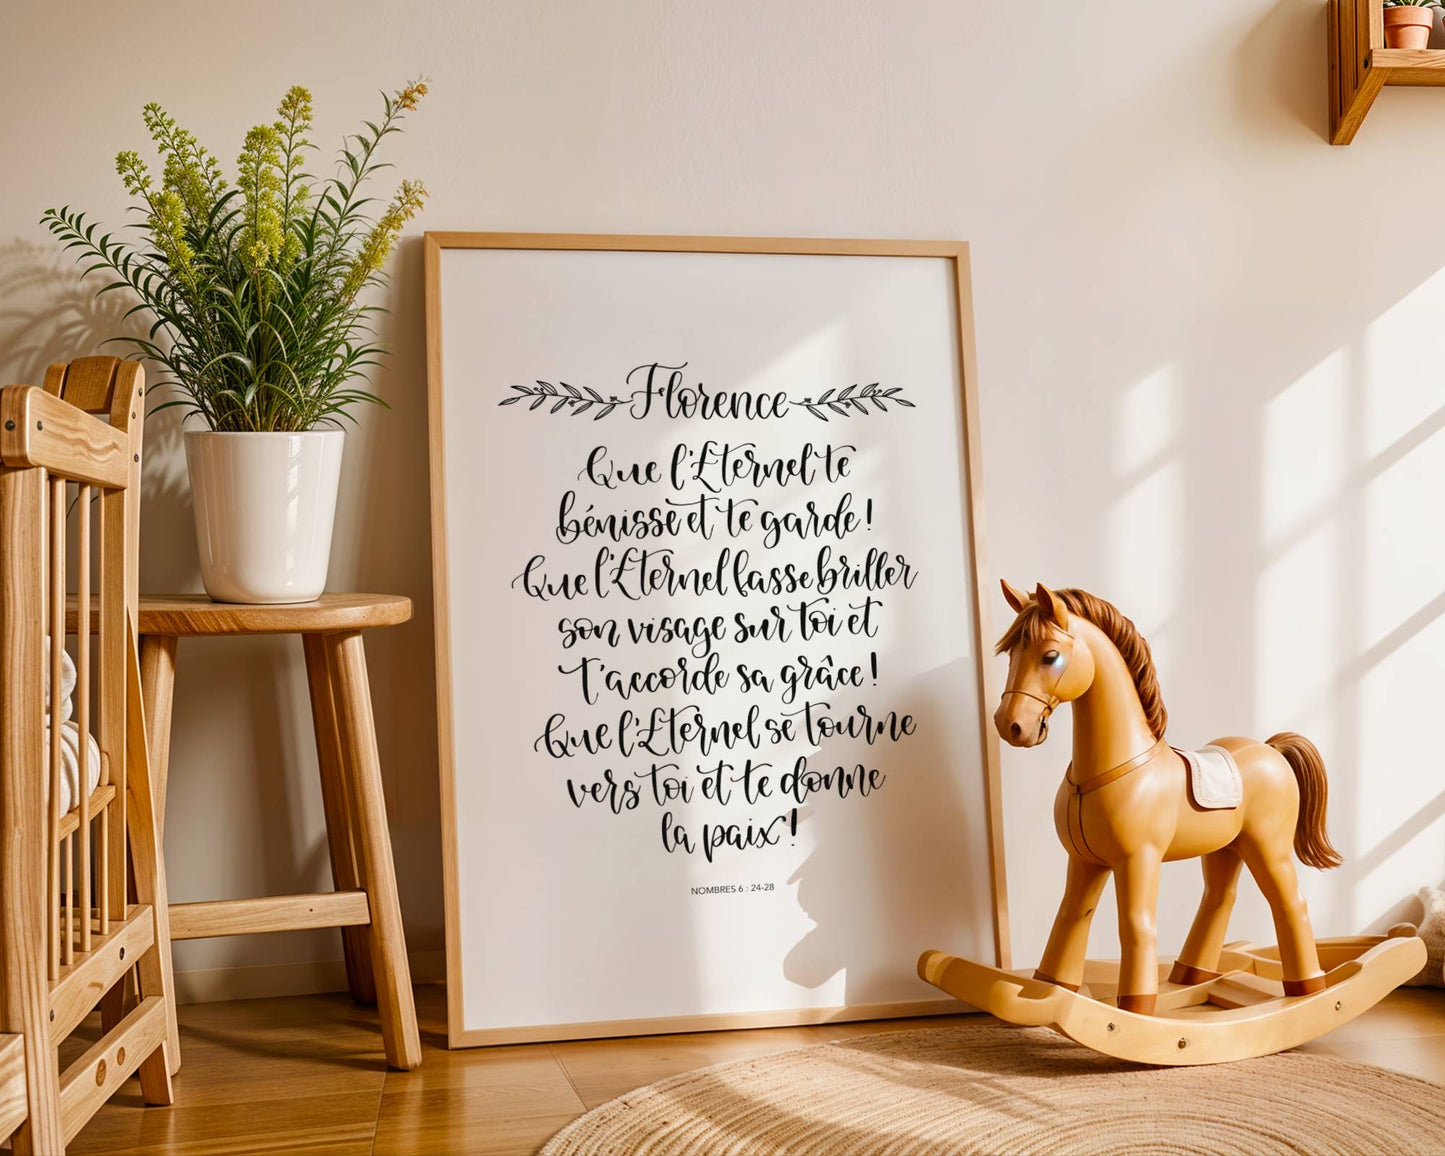 Florence
Que l'Éternel te
bénisse et te garde !
Que l'Éternel fasse briller
son visage sur toi et
t'accorde sa grâce !
Que l'Éternel se tourne
vers toi et te donne
la paix !
NOMBRES 6 : 24-28